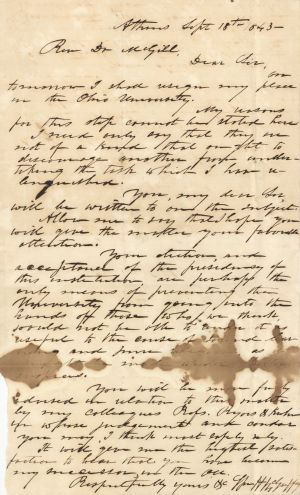 Athens Sept 18th 1843 -
Rev. Dr McGill.
Dear Sir, on
tomorrow I shall resign my place
in the Ohio University.
My reasons
for this step cannot be stated here
I need only say that they are
not of a kind that ought to
discourage another from under-
taking the task which I have re-
linquished.
You, my dear Sir,
will be written to on the subject.
Allow me to say that I hope you
will give the matter your favorable
attention.
Your election, and
acceptance of the presidency of
this institution, are perhaps the
only means of preventing the
University from going into the
hands of those who, we think,
would not be able to
useful to the cause of
and
in
You will be more fully
advised in relation to this matter
by my colleagues Profs. Ryors &
upon whose judgement and candor
you may I think most safely rely.
It will give me the highest satis-
faction to hear that you have become
my successor in the
Respectfully yours &c